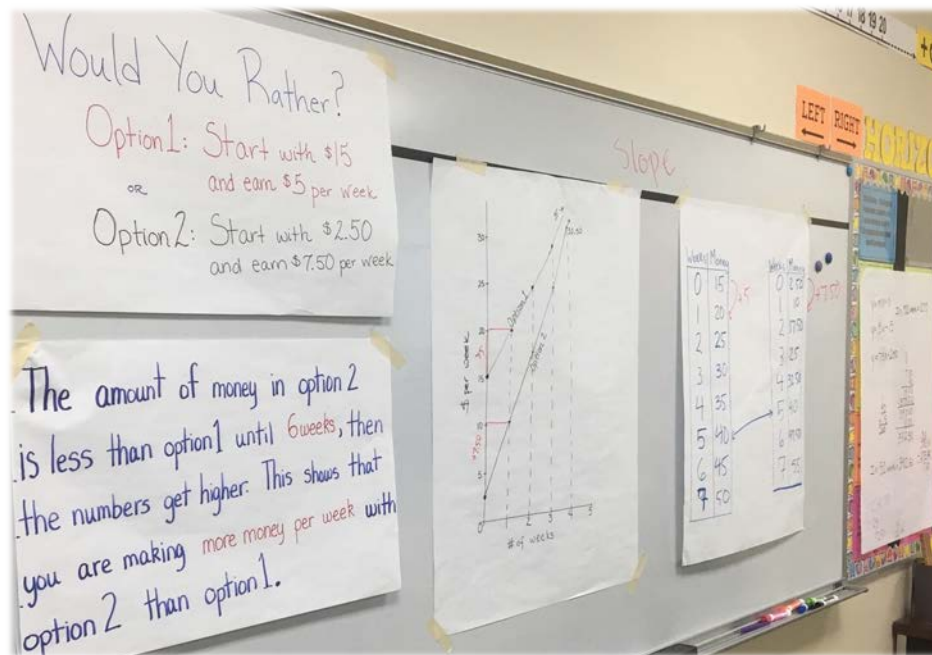 Would You Rather?
Option1: Start with $15
and earn $5 per week
OR
Option2: Start with $2.50
and earn $7.50 per week
The amount of money in option 2
is less than option1 until 6weeks, then
the numbers get higher. This shows that
you are making more money per week with
option 2 than option1.
Slope
$ per week
30
25
20
15
10
5
0
+7.50
Option 1
Option 2
32.50
1 2 3 4 5
# of weeks
Weeks Money
0 15
1 20
2 25
3 30
4 35
5 40
6 45
7 50
+5
Weeks Money
0 2.50
1 10
2 17.50
3 25
4 32.50
5 40
6 47.50
7 55
+7.50
17 18 19 20
LEFT
RIGHT